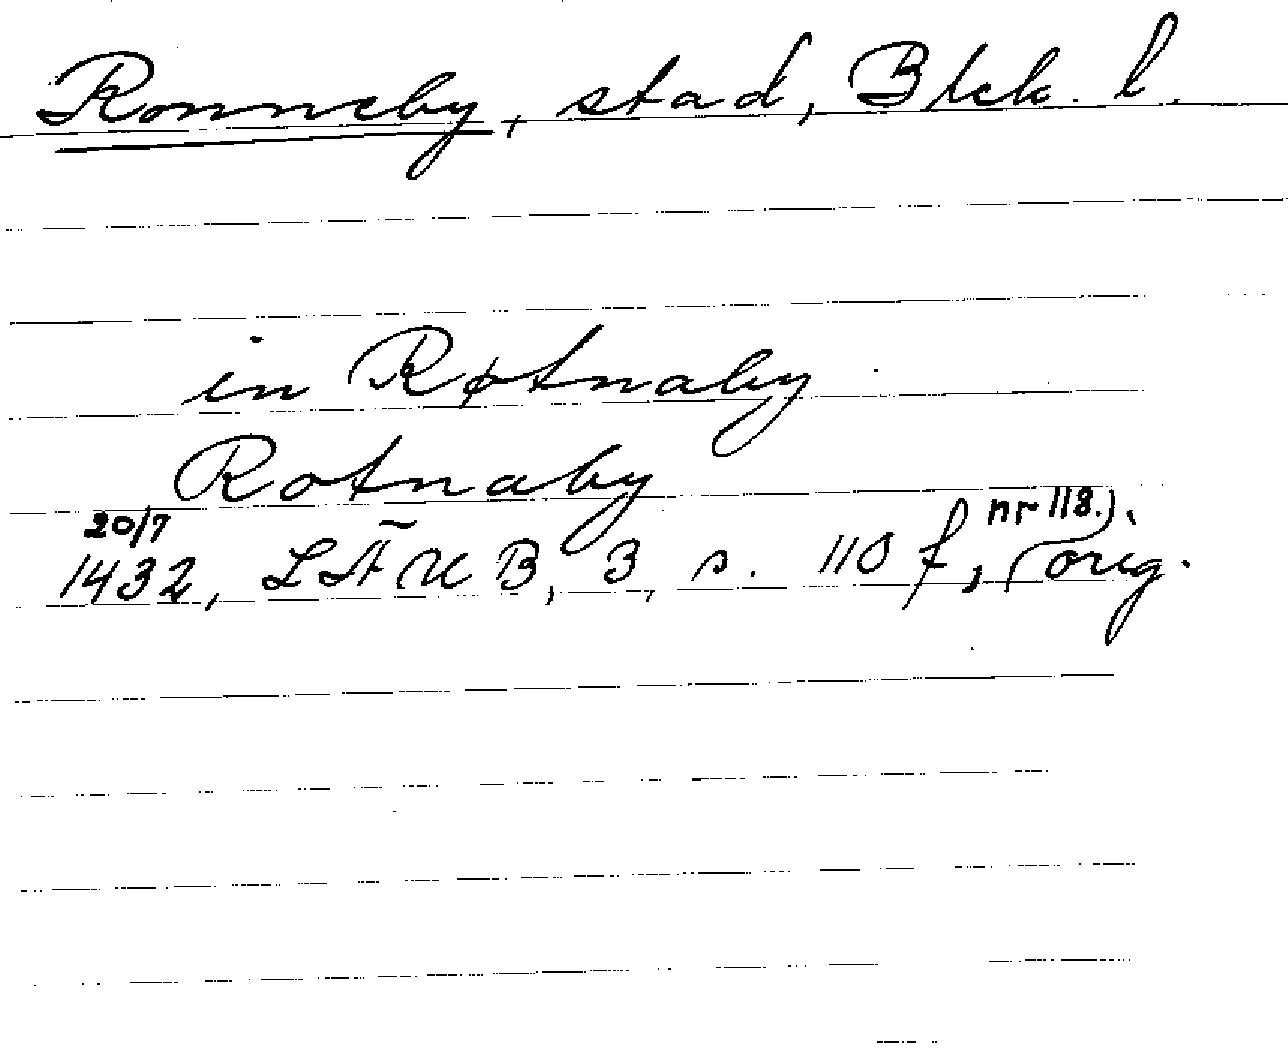 Ronneby, stad, Blek. l.
in Røtnaby
Rotnaby
20/7
1432, LÄUB, 3, s. 110 f, (nr 118.), orig.